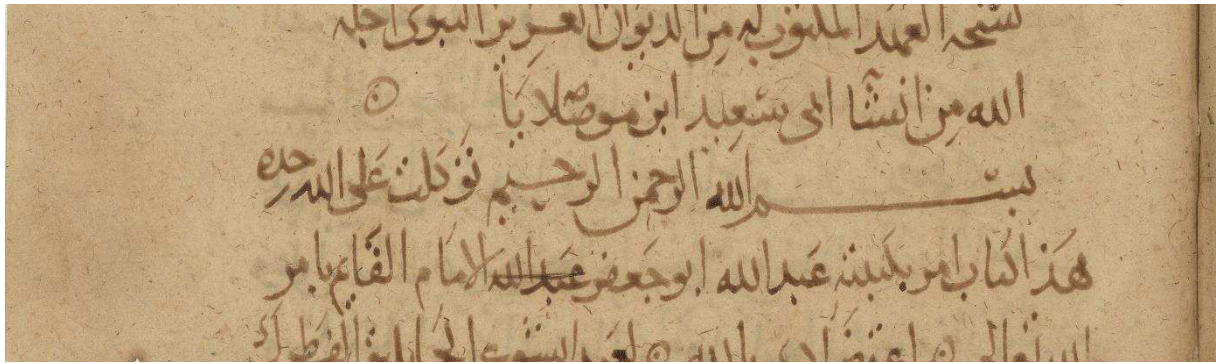 نسخه العهد المكتوب له من الديوان العزيز النبوى اجله
الله من انشا ابى سعيد ابن موصلايا
بسم الله الرحمن الرحيم توكلت على الله وحده
هذا كتاب امر بكتبته عبد الله ابو جعفر عبد الله الامام القايم بامر
الله تعالى